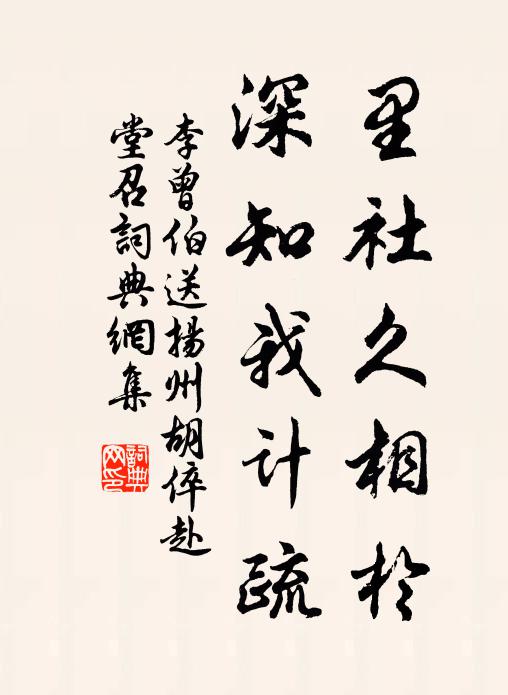 里社久相於
深知我计疏
李曾伯送揚州胡倅赴
堂召詞典網集
詞典網印